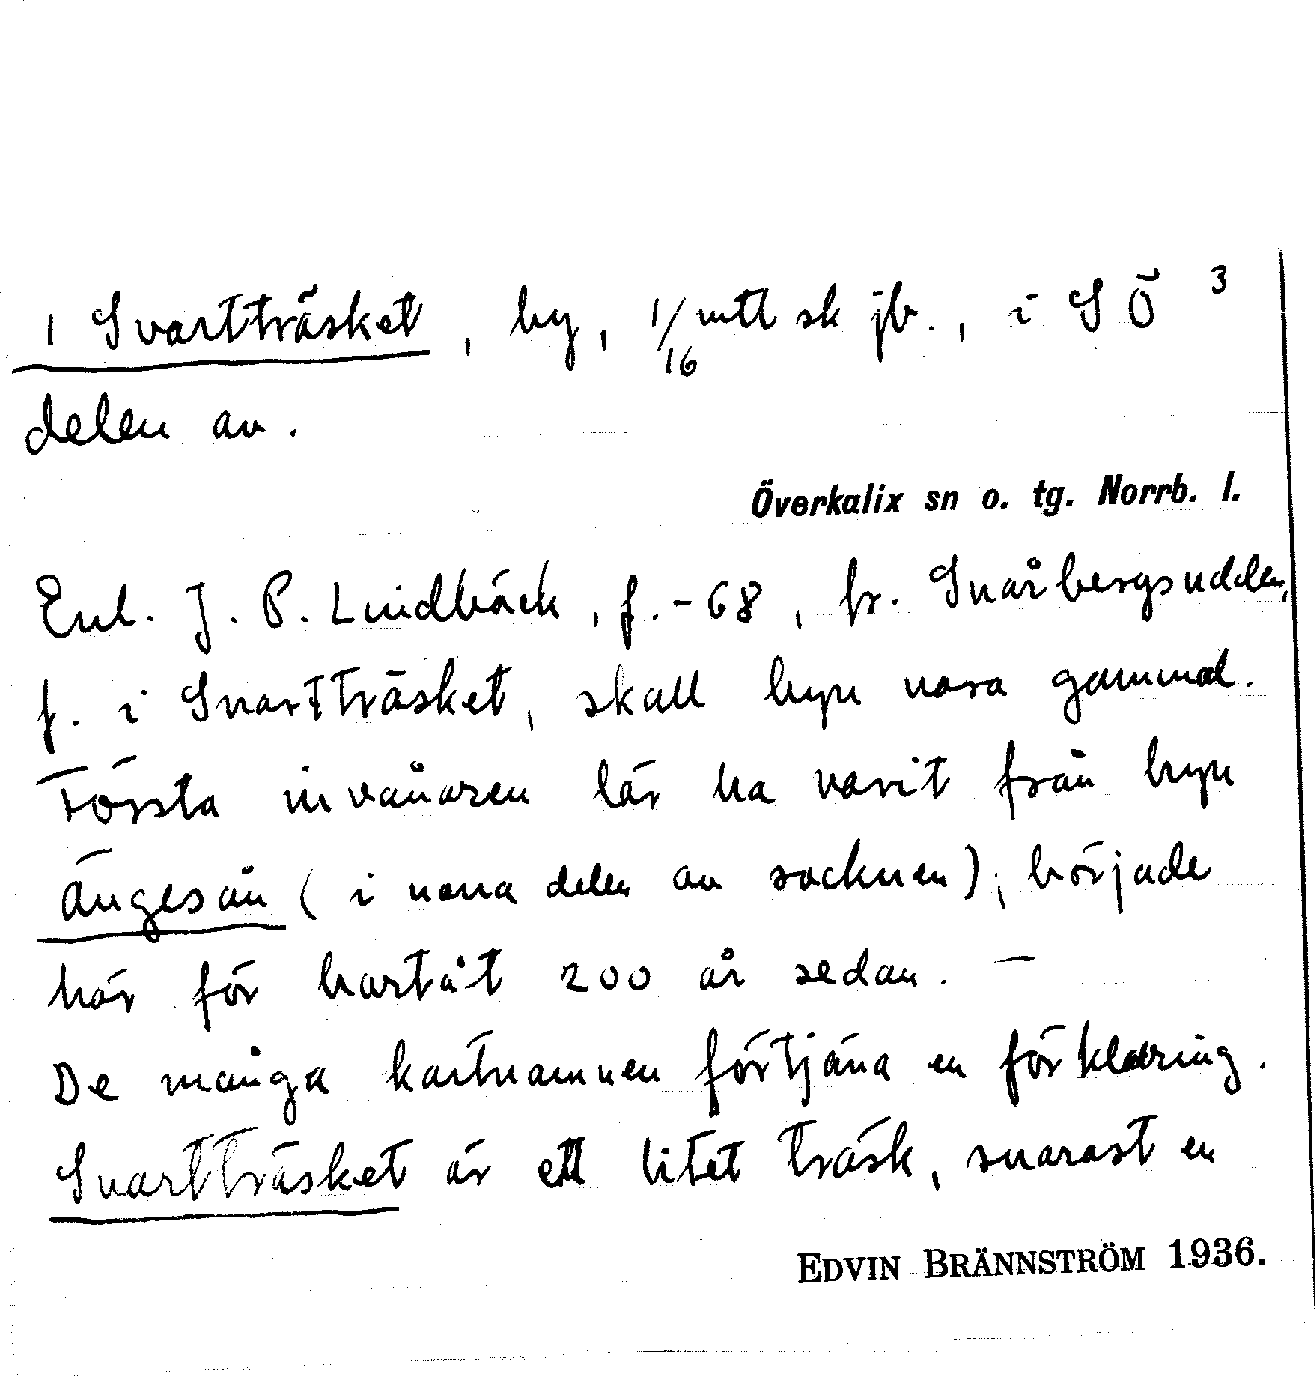 1 Svartträsket, by, 1/16 mtl sk jb., i SÖ 3
delen av.
Överkalix sn o. tg. Norrb. l.
Enl. J. P. Lindbäck, f. -68, fr. Snårbergsudden,
f. i Svartträsket, skall byn vara gammal.
Första invånaren lär ha varit från byn
Ängesån (i norra delen av socknen), började
här för bortåt 200 år sedan. —
De många kartnamnen förtjäna en förklaring.
Svartträsket är ett litet träsk, snarast en
EDVIN BRÄNNSTRÖM 1936.